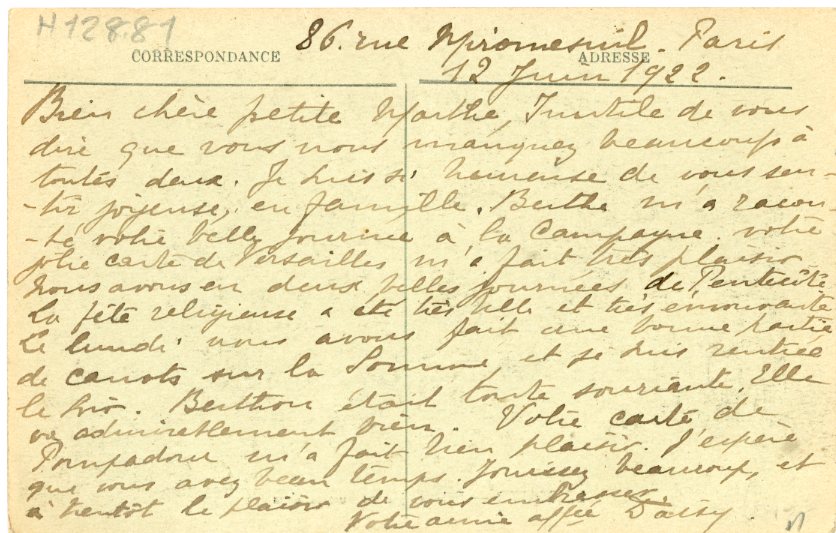 H 12881
86. rue Miromesnil. Paris
CORRESPONDANCE
ADRESSE
12 Juin 1922.
Bien chère petite Marthe, Inutile de vous
dire que vous nous manquez beaucoup à
toutes deux. Je suis si heureuse de vous sen-
-tir joyeuse, en famille. Berthe m'a racon
-té votre belle journée à la Campagne. votre
jolie carte de Versailles m'a fait très plaisir
Nous avons eu deux belles journées de Pentecôte
La fête religieuse a été très belle et très émouvante
Le lundi nous avons fait une bonne partie
de canots sur la Somme et je suis rentrée
le soir. Berthon était toute souriante. Elle
va admirablement bien. Votre carte de
Pompadour m'a fait bien plaisir. J'espère
que vous avez beau temps. Jouissez beaucoup, et
à bientôt le plaisir de vous embrasser.
Votre amie affée Daisy